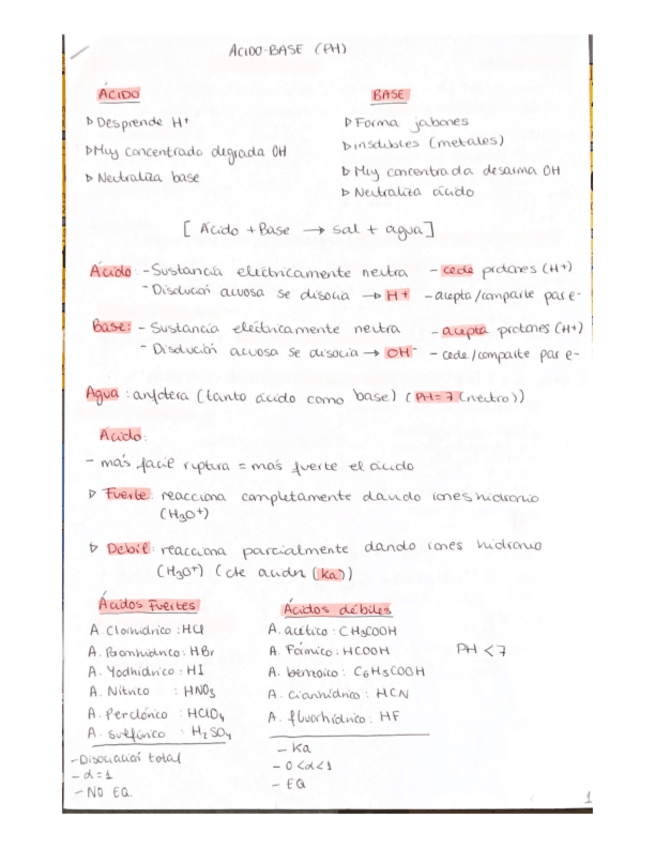 ÁCIDO-BASE (PH)
ÁCIDO
▷ Desprende H⁺
▷ Muy concentrado degrada OH
▷ Neutraliza base
BASE
▷ Forma jabones
▷ insolubles (metales)
▷ Muy concentrada desarma OH
▷ Neutraliza ácido
[ Ácido + Base → sal + agua]
Ácido: - Sustancia eléctricamente neutra - cede protones (H+)
- Disolución acuosa se disocia → H+ - acepta/comparte par e-
Base: - Sustancia eléctricamente neutra - acepta protones (H+)
- Disolución acuosa se disocia → OH⁻ - cede/comparte par e-
Agua: anfótera (tanto ácido como base) (PH=7 (neutro))
Ácido:
- más fácil ruptura = más fuerte el ácido
▷ Fuerte: reacciona completamente dando iones hidronio
(H₃O⁺)
▷ Debil: reacciona parcialmente dando iones hidronio
(H₃O⁺) (cte (ka))
Ácidos Fuertes
A. Clorhídrico: HCl
A. Bromhídrico: HBr
A. Yodhídrico: HI
A. Nítrico : HNO₃
A. Perclórico : HClO₄
A. sulfúrico : H₂SO₄
- Disociación total
- α = 1
- NO EQ.
Ácidos débiles
A. acético: CH₃COOH
A. Fórmico: HCOOH
A. benzoico: C₆H₅COOH
A. cianhídrico: HCN
A. fluorhídrico: HF
- Ka
- 0<α<1
- EQ
PH <7
1